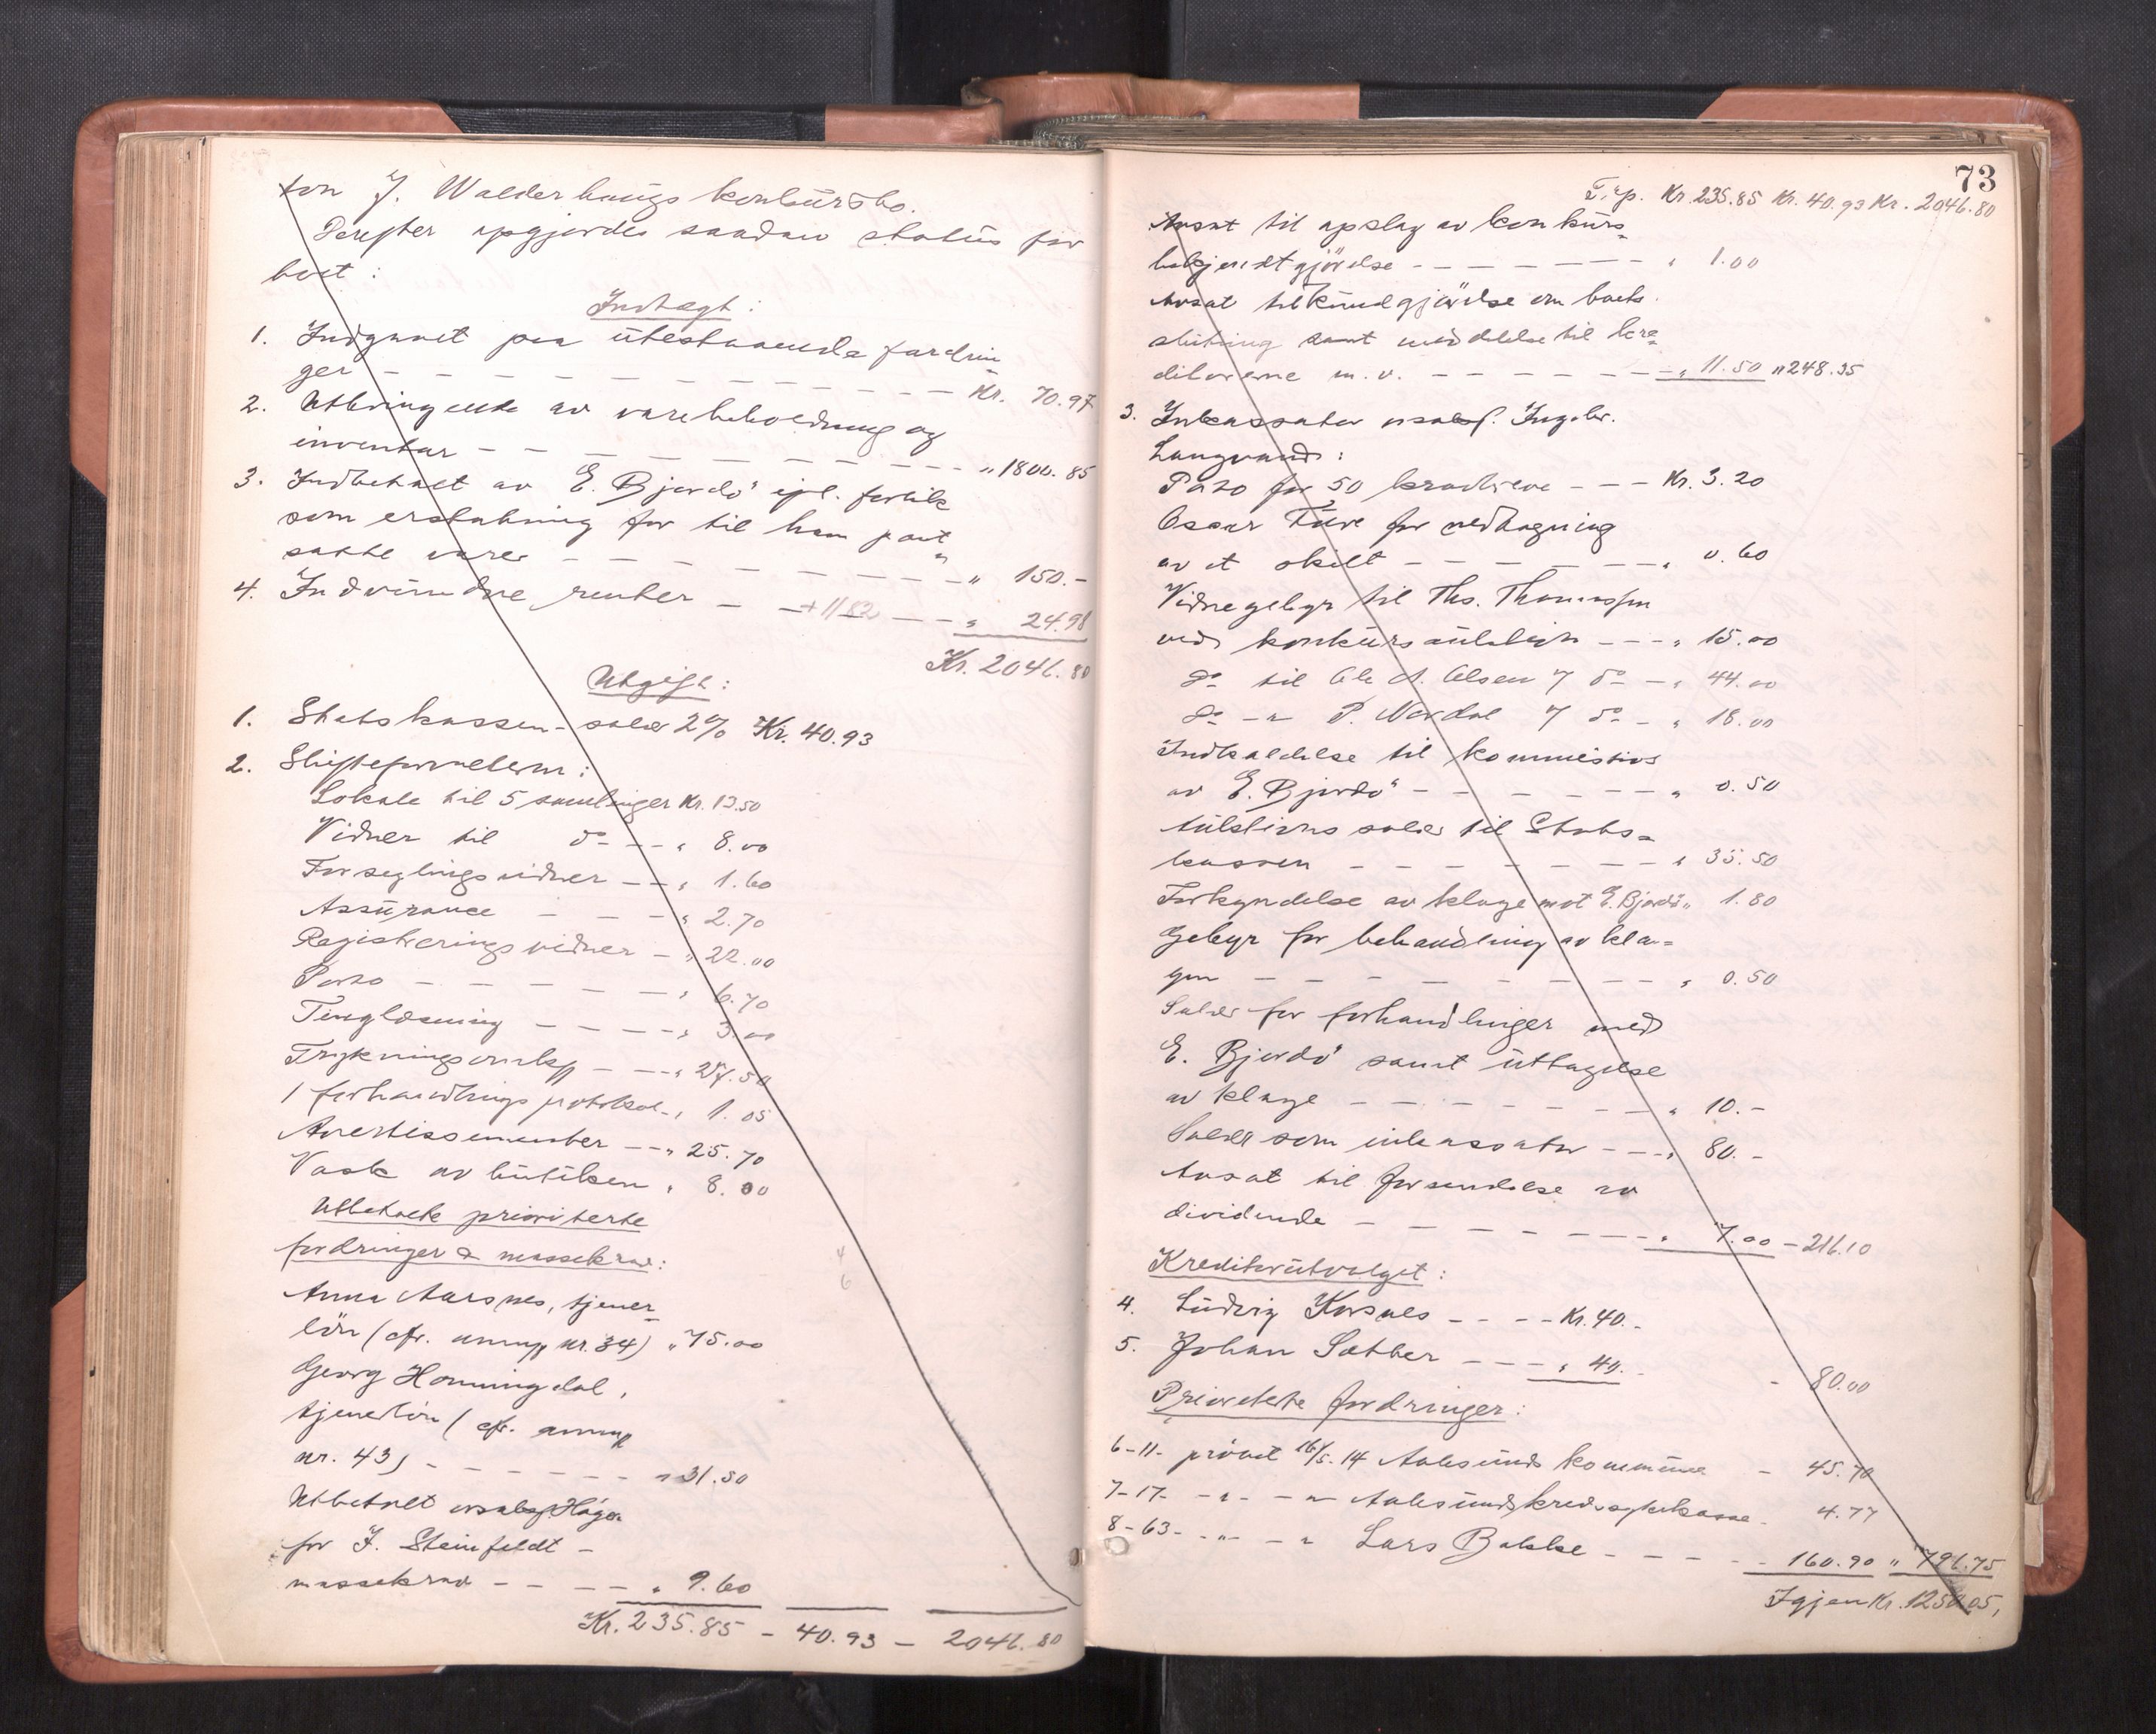 fon J. Walderhaugs konkursbo.
Derefter opgjordes saadan status for
boet:
Indtægt:
1. Indgaaet paa utestaaende fordrin
ger — — — Kr. 70.97
2. Utbringende av varebeholdning og
inventar — — — " 1800.85
3. Indbetalt av E. Bjordö ifl. forlik
som erstatning for til ham pant
satte varer — — — " 150.-
4. Indvundne renter — + 11 82 — " 24.98
Kr. 2046.80
Utgift:
1. Statskassen - salær 2% Kr. 40.93
2. Skifteforvalteren:
Lokale til 5 samlinger Kr. 12.50
Vidner til do — " 8.00
Forseglingsvidner — " 1.60
Assurance — " 2.70
Registreringsvidner — " 22.00
Porto — " 6.70
Tinglæsning — " 3.00
Trykningsomk — " 27.50
1 forhandlings protokol - " 1.05
Avertissementer — " 25.70
Vask av butiken " 8.00
Utbetalte prioriterte
fordringer & massekrav:
Anna Aarsnes, tjener-
lön (cfr. anm nr. 34) " 75.00
Georg Honningdal,
tjenerlön (cfr. anm
nr. 43) — " 31.50
Utbetalt
for J. Steinfeldt -
massekrav — " 9.60
Kr. 235.85 - 40.93 - 2046.80
73
Trsp. Kr. 235.85 Kr. 40.93 Kr. 2046.80
Avsat til opslag av konkurs-
bekjendtgjörelse — " 1.00
Avsat til kundgjörelse om boets
slutning samt meddelelse til kre-
ditorerne m.v. — " 11.50 " 248.35
3. Inkassator Ingebr.
Langvand:
Porto for 50 kravbreve — Kr. 3.20
Oscar Tue for nedtagning
av et skilt — " 0.60
Vidnegebyr til Ths. Thomassen
ved konkursauktion — " 15.00
do til Ole A. Olsen 7 do — " 44.00
do - " P. Nordal 7 do — " 18.00
Indkaldelse til kommission
av E. Bjordö — " 0.50
Auktions salær til Stats-
kassen — " 35.50
Forkyndelse av klage mot E. Bjordö " 1.80
Gebyr for behandling av kla-
gen — " 0.50
Salær for forhandlinger med
E. Bjordö samt uttagelse
av klage — " 10.-
Salær som inkassator — " 80.-
Avsat til forsendelse av
dividende — " 7.00 - 216.10
Kreditorutvalget:
4. Ludvig Korsnes — Kr. 40.-
5. Johan Sæther — " 40.- - 80.00
Prioriterte fordringer:
6-11- prövet 16/5.14 Aalesunds kommune - 45.70
7-17- - " - - " Aalesunds kredssykekasse - 4.77
8-63- - " - - " Lars Bakke — 160.90 " 796.75
Igjen Kr. 1250.05,